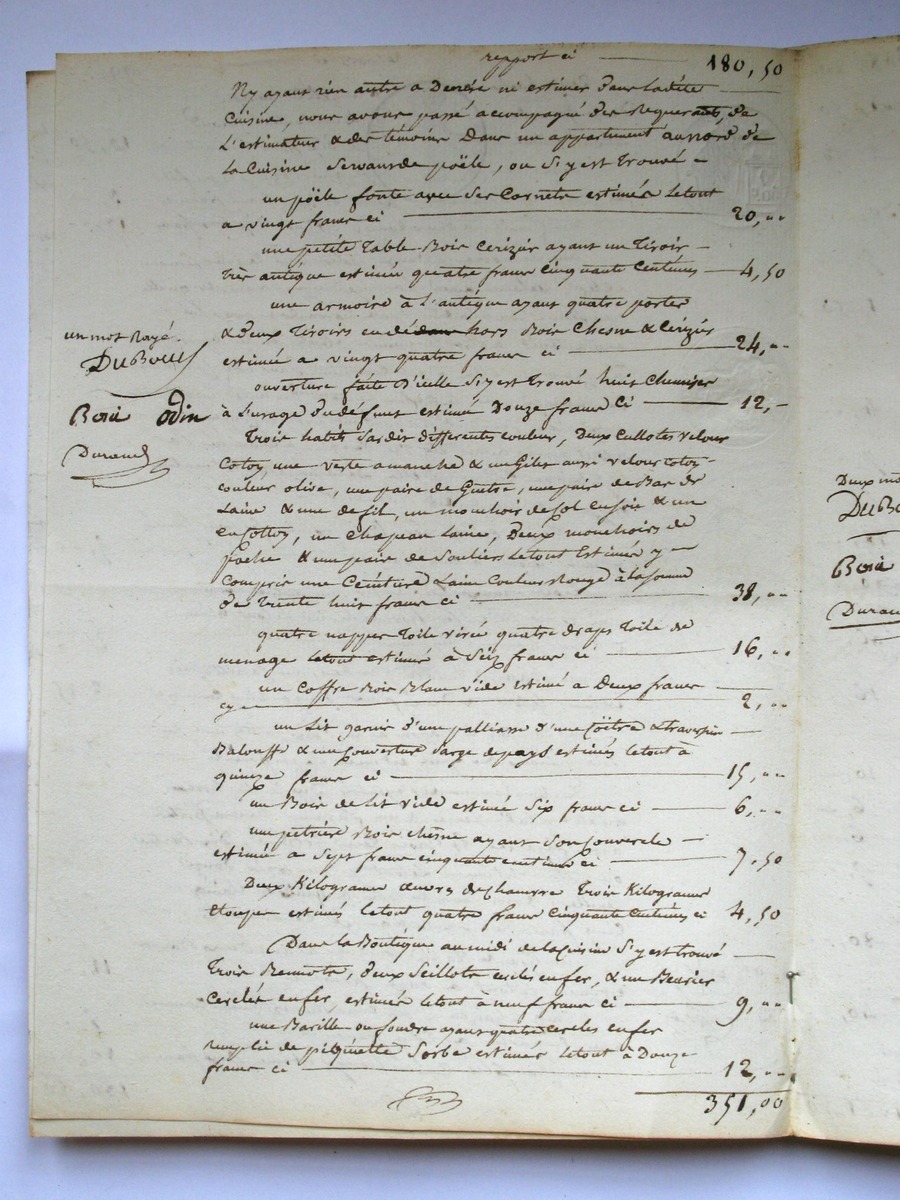 report ci 180,50
N'y ayant rien autre a Décrire ni estimer dans Ladite
Cuisine, nous avons passé accompagné des Requerants, de
L'estimateur & des témoins Dans un appartement au nord de
La Cuisine Servant de poële, ou S'y est Trouvé
un poële fonte avec Ses Cornets estimés Le tout
a vingt francs ci 20,"
une petite Table Bois Cerizier ayant un Tiroir
Très antique estimée quatre francs Cinquante Centimes 4,50
une armoire à L'antique ayant quatre portes
& deux Tiroirs en dé dans hors Bois Chesne & Cerizier
estimée a vingt quatre francs ci 24,"
ouverture faite D'icelle S'y est Trouvé huit Chemises
à L'usage du défunt estimé Douze francs Ci 12,"
Trois habits Sardis différentes couleur, Deux Cullotes velour
Coton une veste a manche & un Gilet aussi velour coton
couleur olive, une paire de Guêtre, une paire de Bas de
Laine & une de fil, un mouchoir de Col en Soie & un
en Cotton, un Chapeau Laine, Deux mouchoirs de
poche & une paire de Souliers Le tout Estimés y
Compris une Ceinture Laine Couleur Rouge à la Somme
de Trente huit francs ci 38,"
quatre nappes Toile virée quatre draps Toile de
menage Le tout estimé à Seize francs ci 16,"
un Coffre Bois Blanc vide Estimé a Deux francs
cy 2,"
un Lit garni d'une palliasse d'une Coitre & traversin
Balouffe & une Couverture Sarge de pays estimés Le tout à
quinze francs ci 15,"
un Bois de Lit vide estimé Six francs ci 6,"
une petrière Bois chesne ayant Son Couvercle
estimée a Sept francs cinquante centimes ci 7,50
Deux Kilogrames œuvre de Chamvre Trois Kilogrames
Etoupes estimés Le tout quatre francs Cinquante Centimes ci 4,50
Dans la Boutique au midi de la Cuisine S'y est trouvé
Trois Seillots, deux Seillots cerclés en fer, & une Beurier
Cerclés en fer, estimés Le tout à neuf francs ci 9,"
une Barille ou foudre ayant quatre Cercles en fer
remplie de piquette Sorbe estimés Le tout à Douze
francs ci 12,"
351,00
un mot Rayé.
DuBouis
Odin
Durand
Deux mo
DuBo
Duran